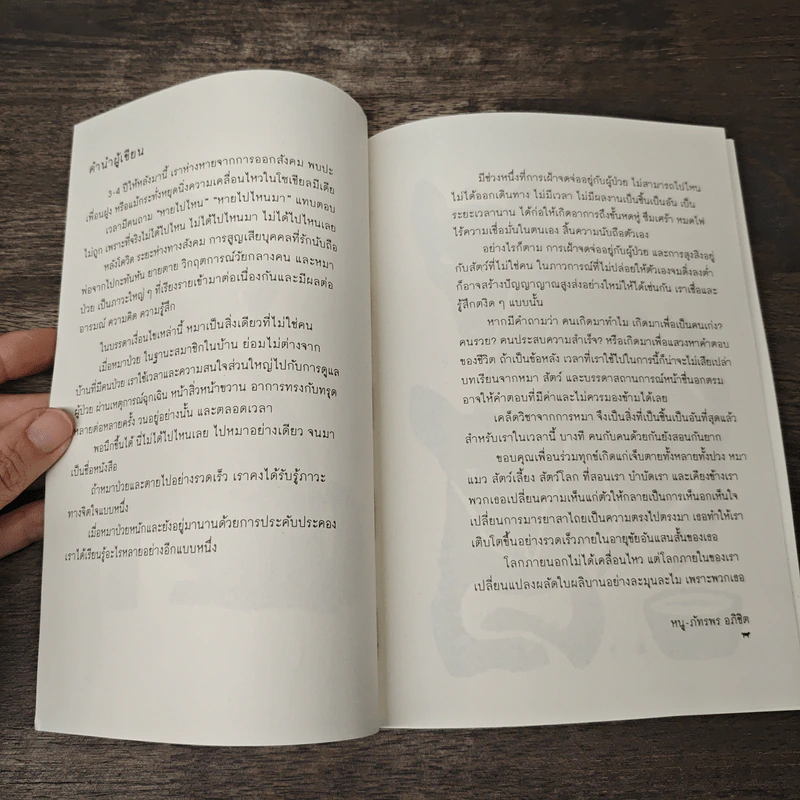 คำนำผู้เขียน
3-4 ปีให้หลังมานี้ เราห่างหายจากการออกสังคม พบปะ
เพื่อนฝูง หรือแม้กระทั่งหยุดนิ่งความเคลื่อนไหวในโซเชียลมีเดีย
เวลามีคนถาม "หายไปไหน" "หายไปไหนมา" แทบตอบ
ไม่ถูก เพราะที่จริงไม่ได้ไปไหน ไม่ได้ไปไหนมา ไม่ได้ไปไหนเลย
หลังโควิด ระยะห่างทางสังคม การสูญเสียบุคคลที่รักนับถือ
พ่อจากไปกะทันหัน ยายตาย วิกฤตการณ์วัยกลางคน และหมา
ป่วย เป็นภาวะใหญ่ ๆ ที่เรียงรายเข้ามาต่อเนื่องกันและมีผลต่อ
อารมณ์ ความคิด ความรู้สึก
ในบรรดาเงื่อนไขเหล่านี้ หมาเป็นสิ่งเดียวที่ไม่ใช่คน
เมื่อหมาป่วย ในฐานะสมาชิกในบ้าน ย่อมไม่ต่างจาก
บ้านที่มีคนป่วย เราใช้เวลาและความสนใจส่วนใหญ่ไปกับการดูแล
ผู้ป่วย ผ่านเหตุการณ์ฉุกเฉิน หน้าสิ่วหน้าขวาน อาการทรงกับทรุด
หลายต่อหลายครั้ง วนอยู่อย่างนั้น และตลอดเวลา
พอนึกขึ้นได้ นี่ไม่ได้ไปไหนเลย ไปหมาอย่างเดียว จนมา
เป็นชื่อหนังสือ
ถ้าหมาป่วยและตายไปอย่างรวดเร็ว เราคงได้รับรู้ภาวะ
ทางจิตใจแบบหนึ่ง
เมื่อหมาป่วยหนักและยังอยู่มานานด้วยการประคับประคอง
เราได้เรียนรู้อะไรหลายอย่างอีกแบบหนึ่ง
มีช่วงหนึ่งที่การเฝ้าจดจ่ออยู่กับผู้ป่วย ไม่สามารถไปไหน
ไม่ได้ออกเดินทาง ไม่มีเวลา ไม่มีผลงานเป็นชิ้นเป็นอัน เป็น
ระยะเวลานาน ได้ก่อให้เกิดอาการถึงขั้นหดหู่ ซึมเศร้า หมดไฟ
ไร้ความเชื่อมั่นในตนเอง สิ้นความนับถือตัวเอง
อย่างไรก็ตาม การเฝ้าจดจ่ออยู่กับผู้ป่วย และการสุงสิงอยู่
กับสัตว์ที่ไม่ใช่คน ในภาวการณ์ที่ไม่ปล่อยให้ตัวเองจมดิ่งลงต่ำ
ก็อาจสร้างปัญญาญาณสูงส่งอย่างใหม่ให้ได้เช่นกัน เราเชื่อและ
รู้สึกตงิด ๆ แบบนั้น
หากมีคำถามว่า คนเกิดมาทำไม เกิดมาเพื่อเป็นคนเก่ง?
คนรวย? คนประสบความสำเร็จ? หรือเกิดมาเพื่อแสวงหาคำตอบ
ของชีวิต ถ้าเป็นข้อหลัง เวลาที่เราใช้ไปในการนี้ก็น่าจะไม่เสียเปล่า
บทเรียนจากหมา สัตว์ และบรรดาสถานการณ์หน้าชื่นอกตรม
อาจให้คำตอบที่มีค่าและไม่ควรมองข้ามได้เลย
เคล็ดวิชาจากการหมา จึงเป็นสิ่งที่เป็นชิ้นเป็นอันที่สุดแล้ว
สำหรับเราในเวลานี้ บางที คนกับคนด้วยกันยังสอนกันยาก
ขอบคุณเพื่อนร่วมทุกข์เกิดแก่เจ็บตายทั้งหลายทั้งปวง หมา
แมว สัตว์เลี้ยง สัตว์โลก ที่สอนเรา บำบัดเรา และเคียงข้างเรา
พวกเธอเปลี่ยนความเห็นแก่ตัวให้กลายเป็นการเห็นอกเห็นใจ
เปลี่ยนการมารยาสาไถยเป็นความตรงไปตรงมา เธอทำให้เรา
เติบโตขึ้นอย่างรวดเร็วภายในอายุขัยอันแสนสั้นของเธอ
โลกภายนอกไม่ได้เคลื่อนไหว แต่โลกภายในของเรา
เปลี่ยนแปลงผลัดใบผลิบานอย่างละมุนละไม เพราะพวกเธอ
หนู-ภัทรพร อภิชิต